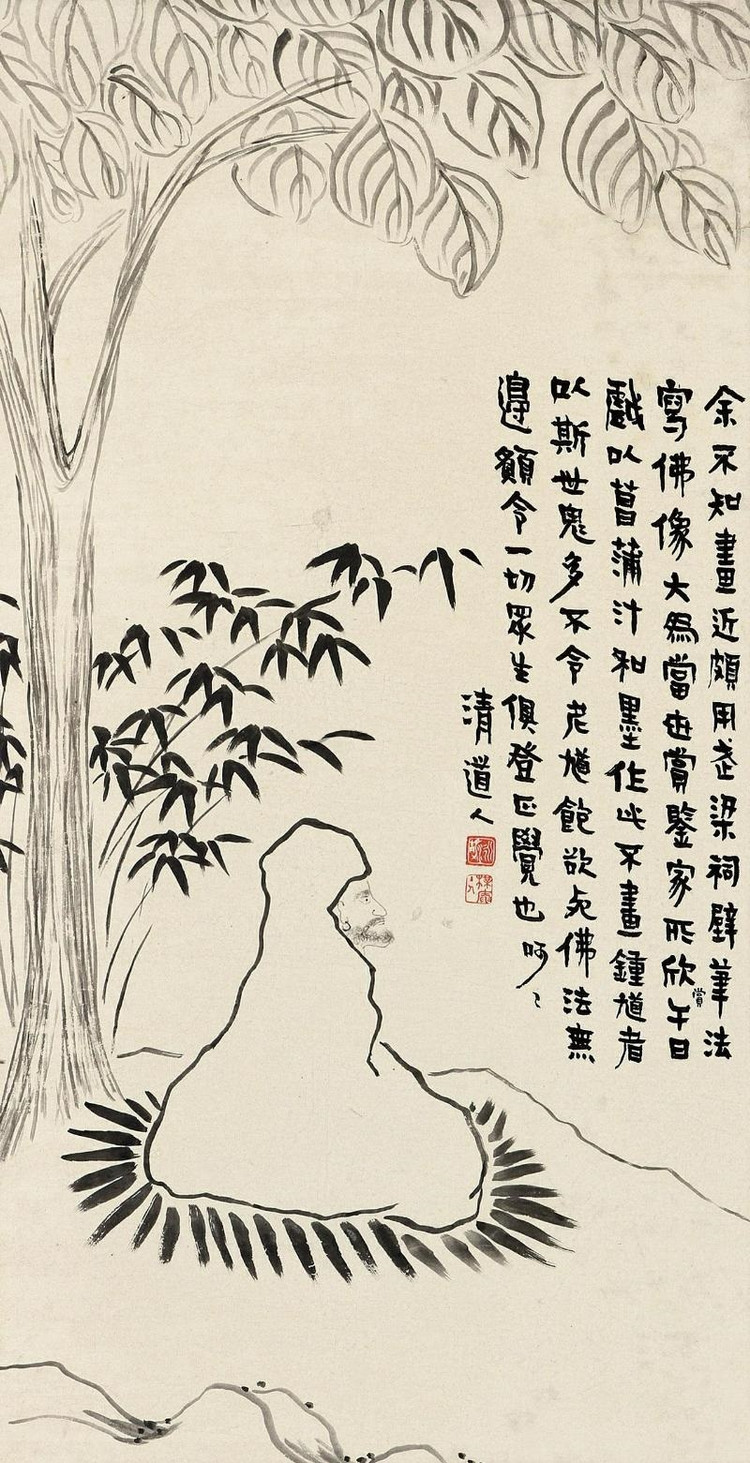 余不知畫近頗用武梁祠壁筆法
寫佛像大為當世賞鑒家所欣賞午日
戲以菖蒲汁和墨作此不畫鍾馗者
以斯世鬼多不令老馗飽欲矣佛法無
邊願令一切眾生俱登正覺也呵〻
清道人